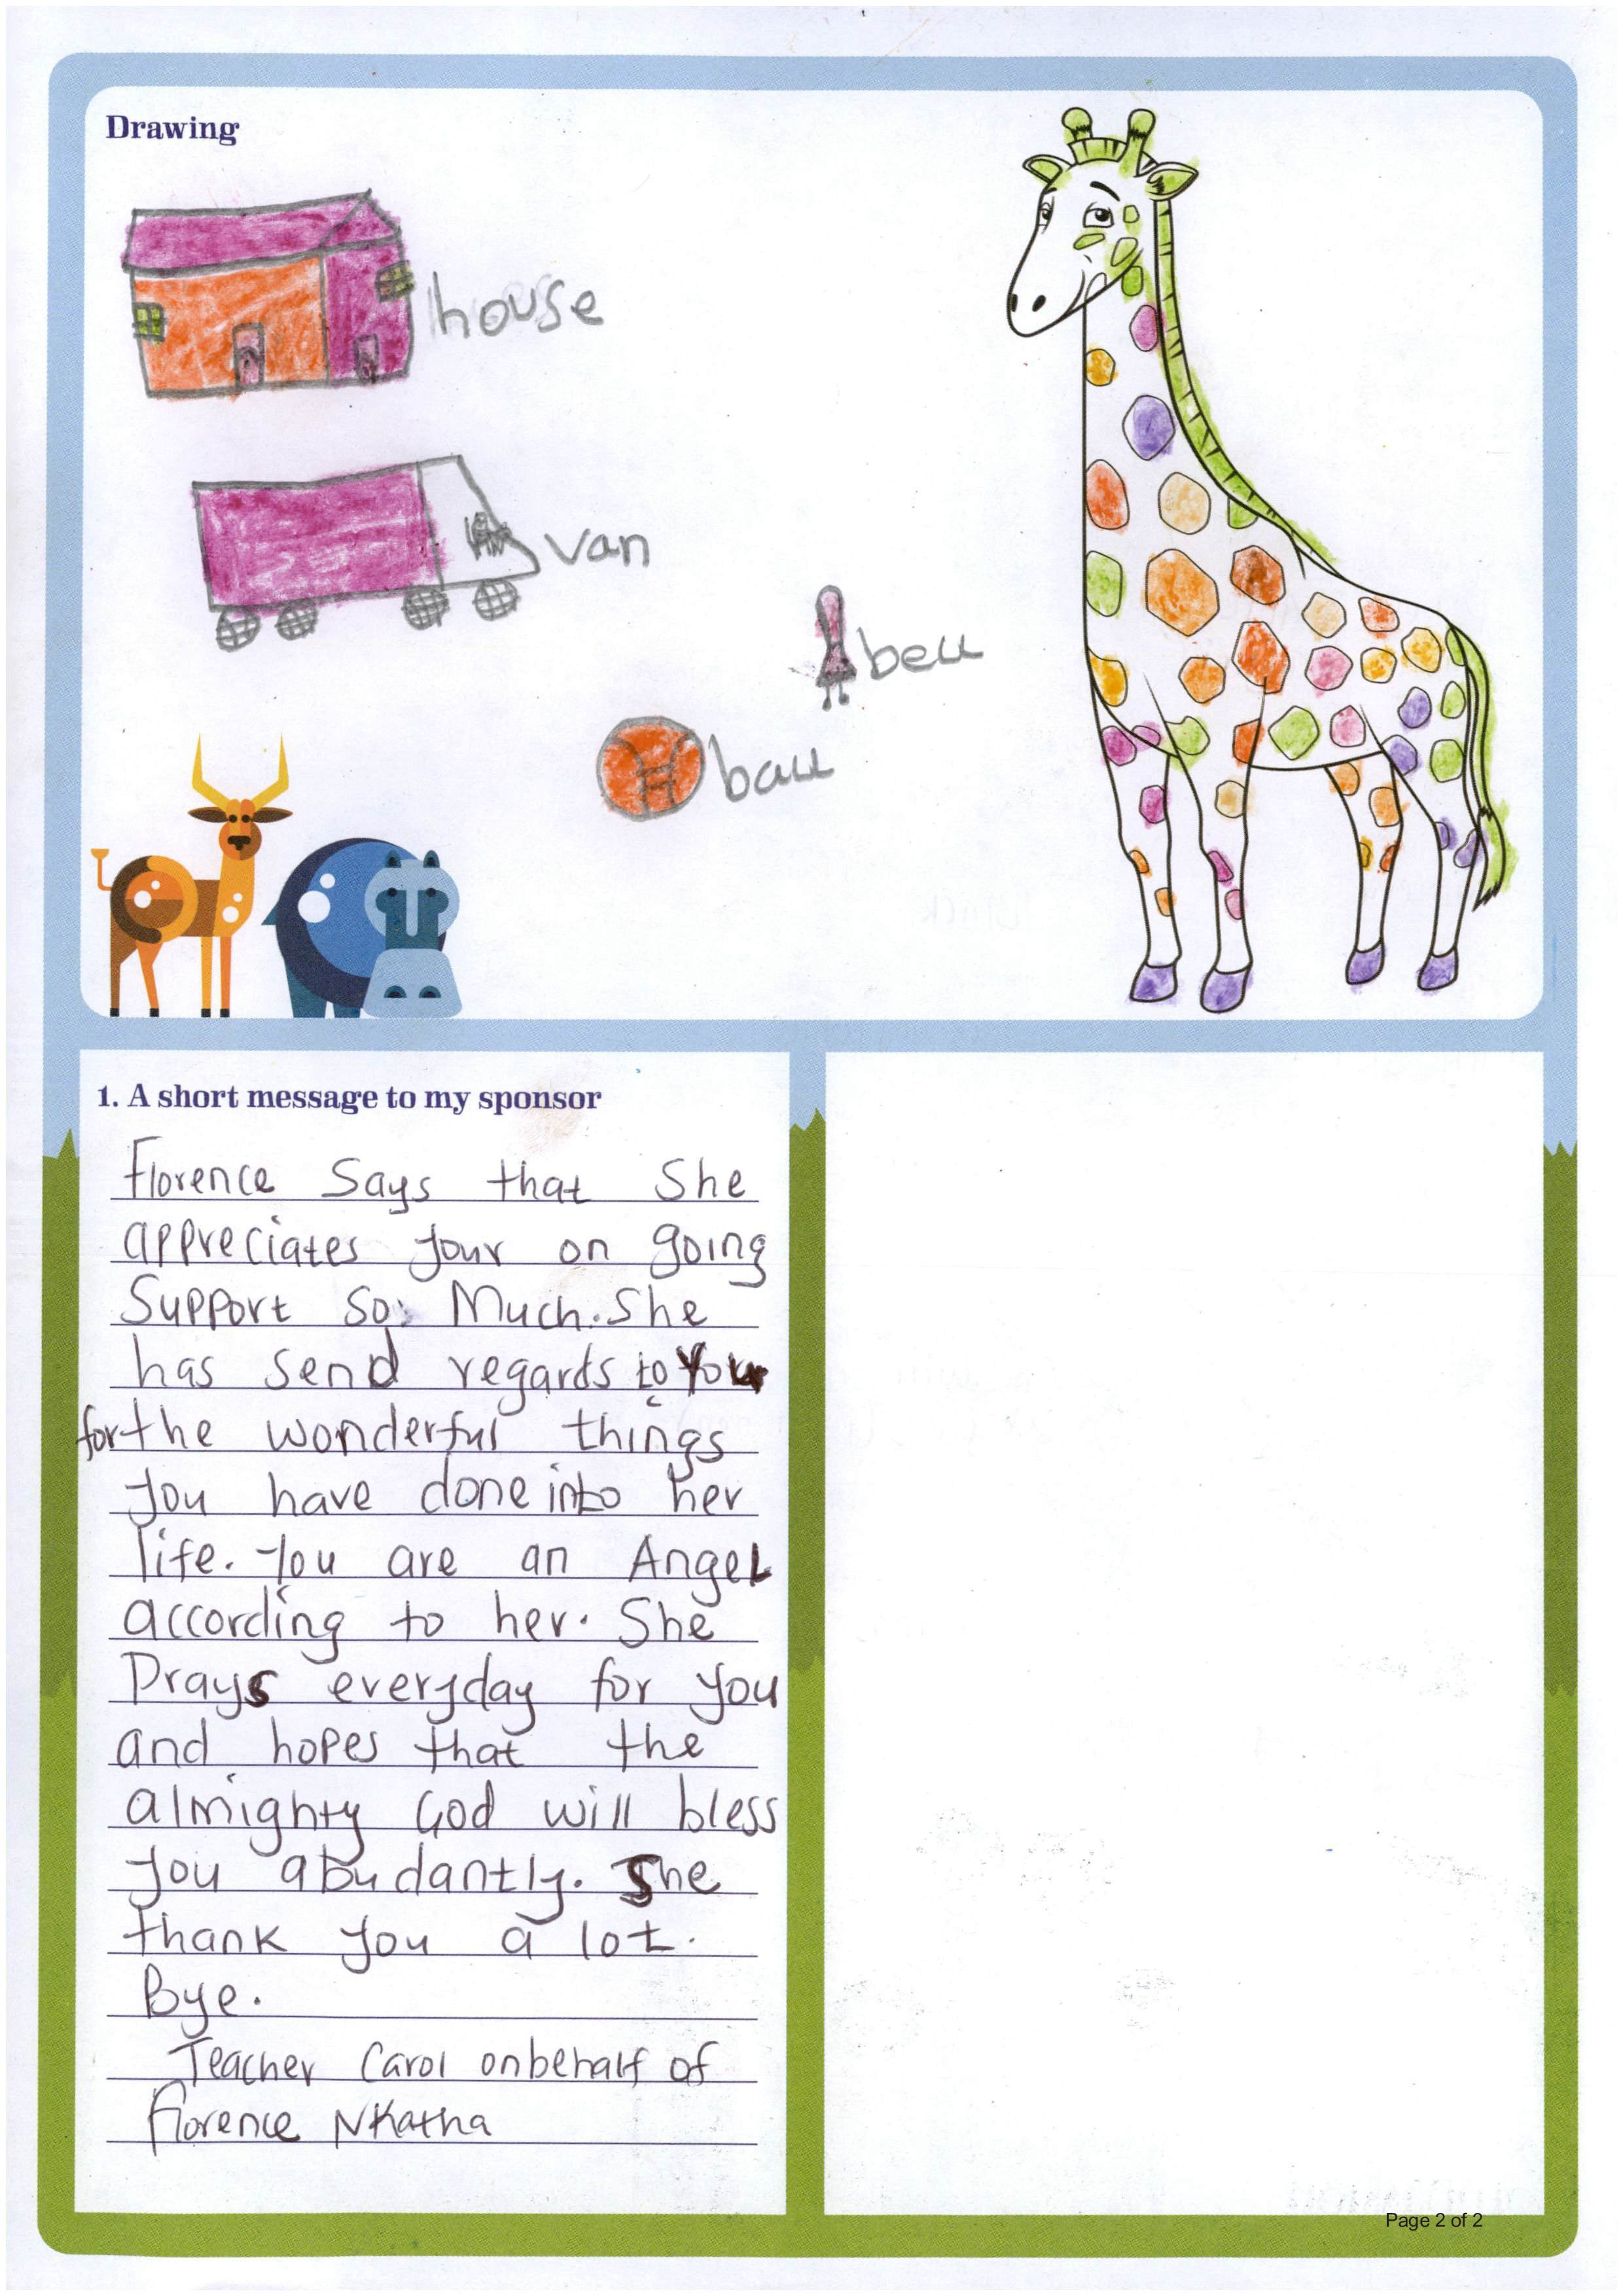 Drawing
house
van
bell
ball
1. A short message to my sponsor
Florence Says that She
appreciates your on going
Support so Much. She
has send regards to You
for the wonderful things
you have done into her
life. You are an Angel
according to her. She
Prays everyday for you
and hopes that the
almighty God will bless
you abudantly. She
thank you a lot.
Bye.
Teacher Carol onbehalf of
Florence Nkatha
Page 2 of 2